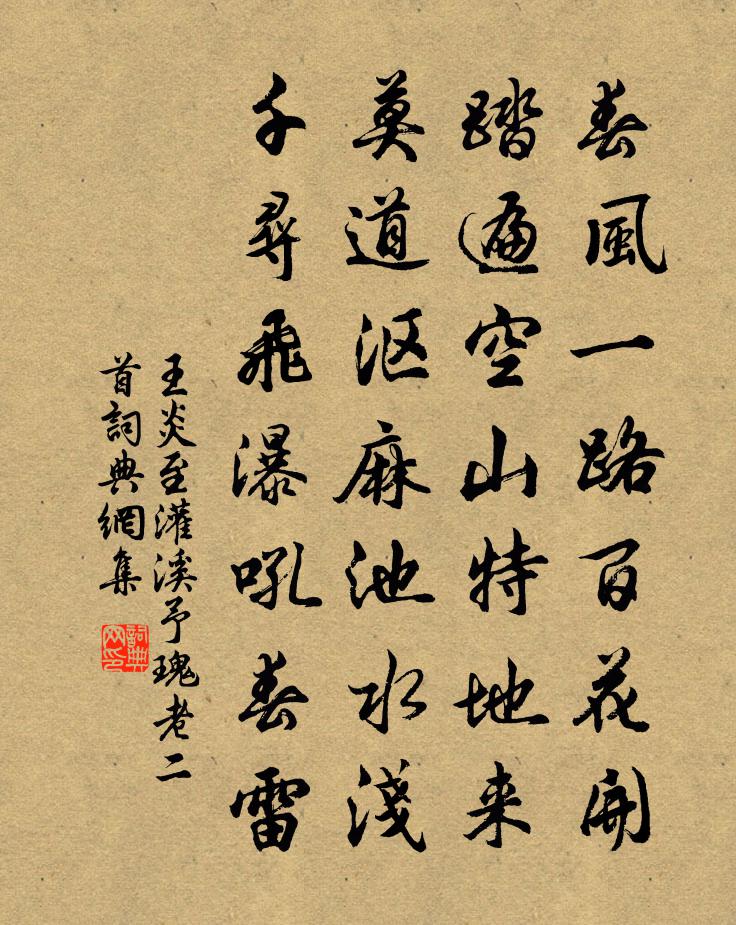 春風一路百花開
踏遍空山特地来
莫道沤麻池水淺
千尋飛瀑吼春雷
王炎至灌溪予瑰老二
首詞典網集
詞典
网印